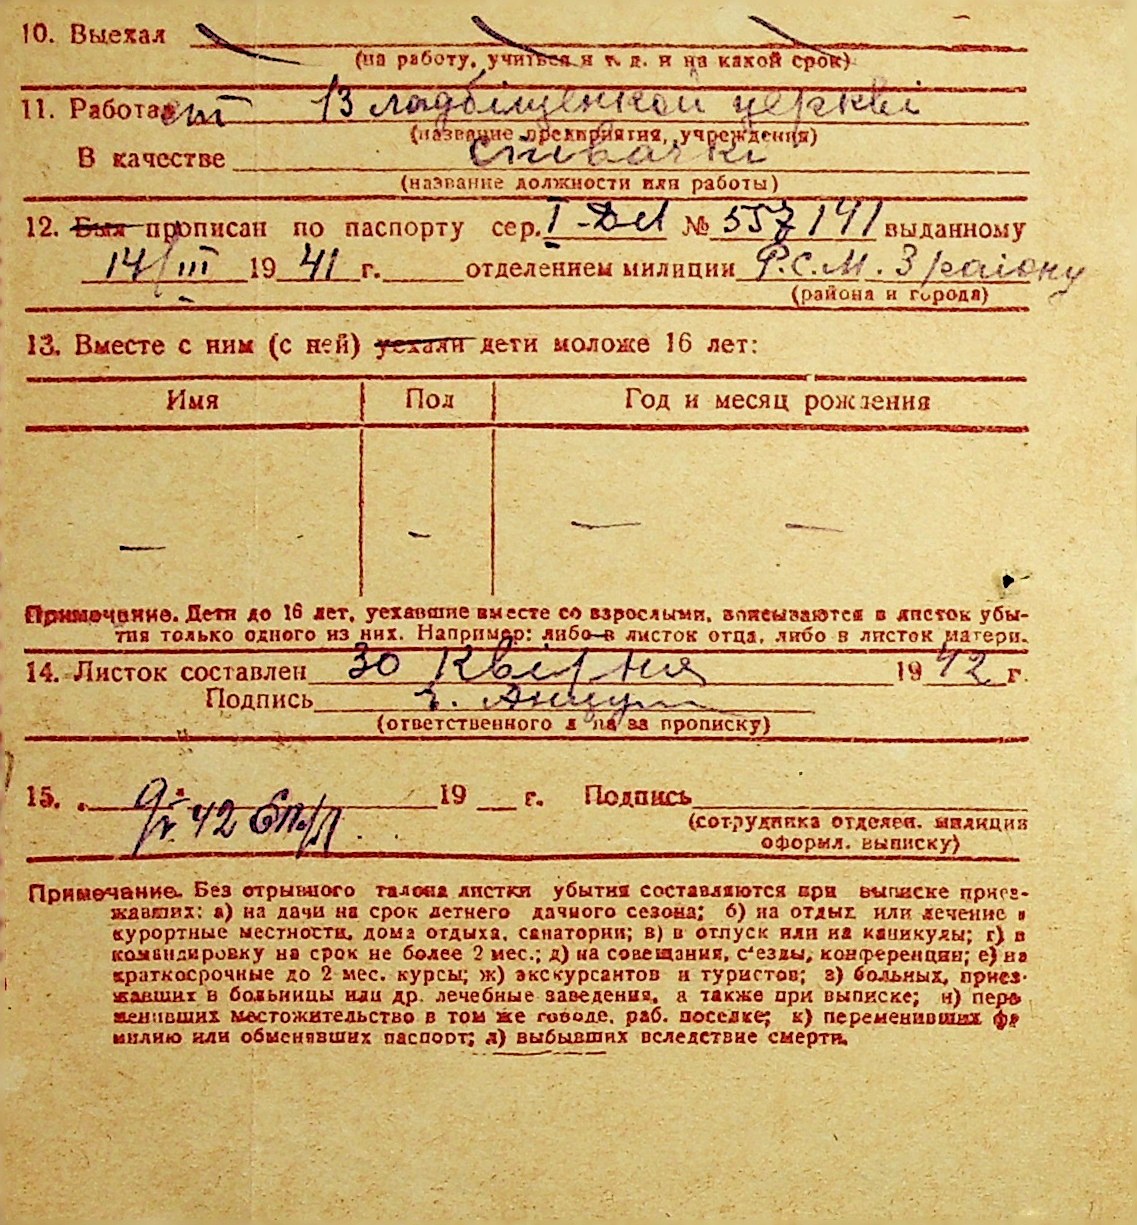 10. Выехал
(на работу, учиться и т. д. и на какой срок)
11. Работает В кладбіщенкой церкві
(название предприятия, учреждения)
В качестве співачкі
(название должности или работы)
12. Был прописан по паспорту сер. № 557141 выданному
14/III 1941 г. отделением милиции Р.С.М. 3 району
(района и города)
13. Вместе с ним (с ней) уехали дети моложе 16 лет:
Имя Пол Год и месяц рождения
— — — —
Примечание. Дети до 16 лет, уехавшие вместе со взрослыми, вписываются в листок убы-
тия только одного из них. Например: либо в листок отца, либо в листок матери.
14. Листок составлен 30 Квітня 1942 г.
Подпись
(ответственного л ца за прописку)
15. 42 19 г. Подпись
(сотрудника отделен. милиции
оформл. выписку)
Примечание. Без отрывного талона листки убытия составляются при выписке приез-
жавших: а) на дачи на срок летнего дачного сезона; б) на отдых или лечение в
курортные местности, дома отдыха, санатории; в) в отпуск или на каникулы; г) в
командировку на срок не более 2 мес.; д) на совещания, с'езды, конференции; е) на
краткосрочные до 2 мес. курсы; ж) экскурсантов и туристов; з) больных, приез-
жавших в больницы или др. лечебные заведения, а также при выписке; и) пере
менивших местожительство в том же городе, раб. поселке; к) переменивших фа
милию или обменявших паспорт; л) выбывших вследствие смерти.